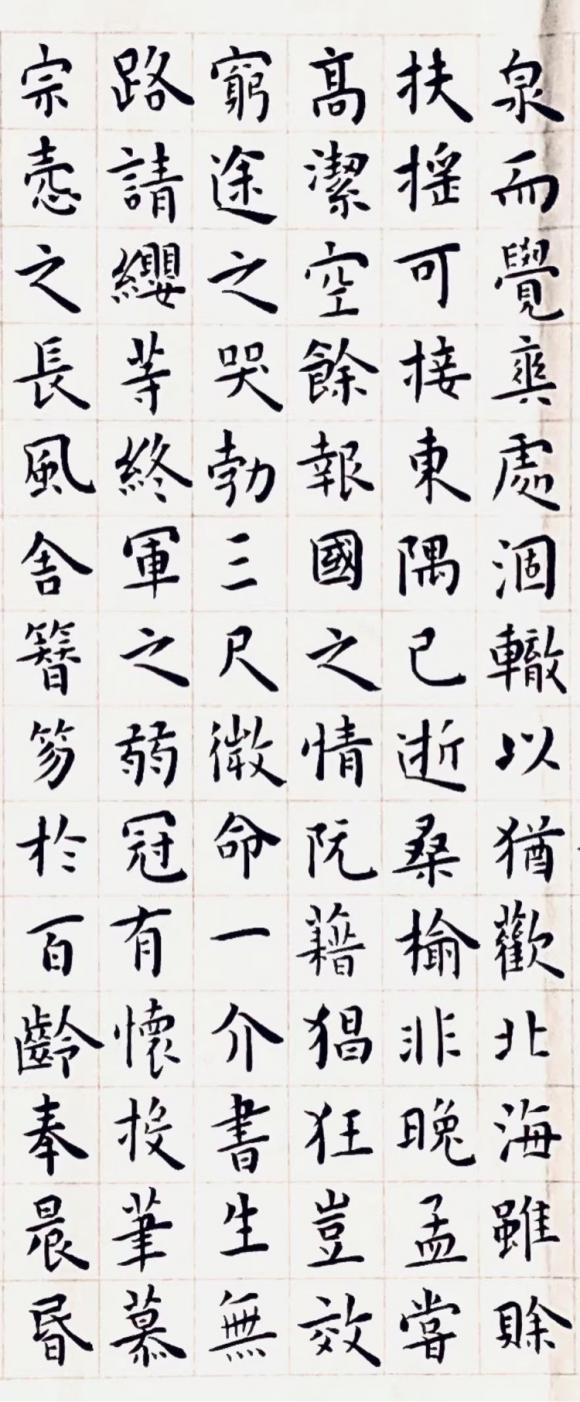 泉而覺爽處涸轍以猶歡北海雖賒
扶搖可接東隅已逝桑榆非晚孟嘗
髙潔空餘報國之情阮藉猖狂豈效
窮途之哭勃三尺微命一介書生無
路請纓等終軍之弱冠有懷投筆慕
宗愨之長風舍簪笏於百齡奉晨昏